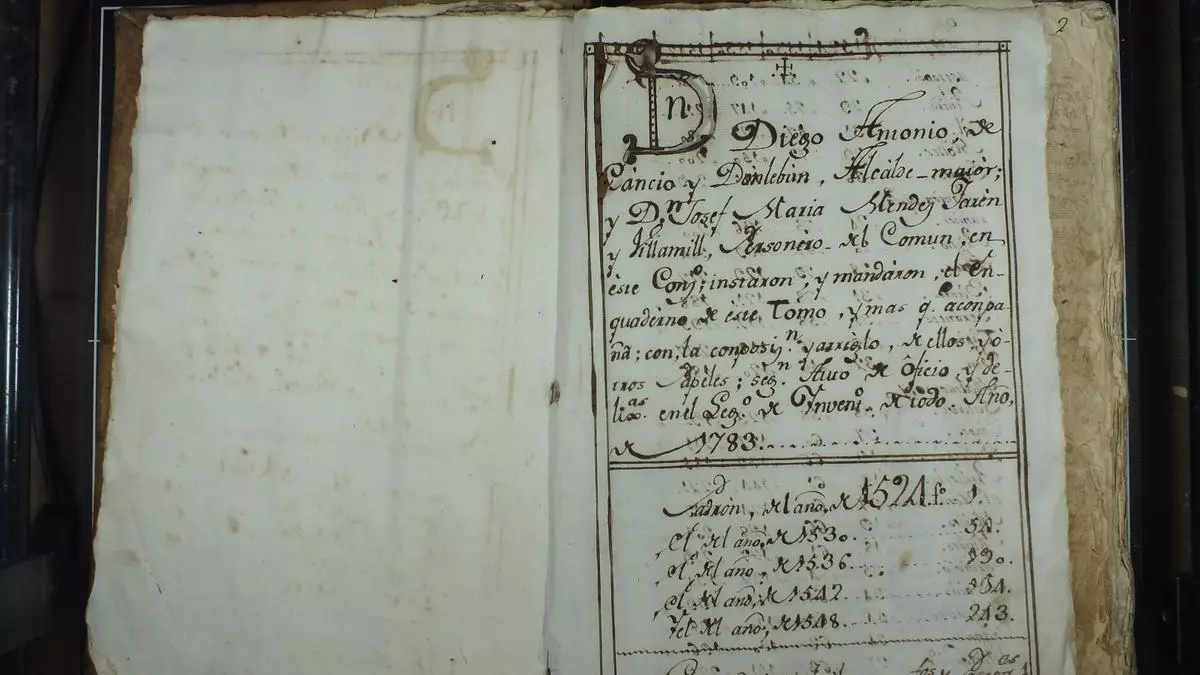 2
Dn Diego Antonio, de
Cancio y Donlebun, Alcalde-maior;
y Dn. Josef Maria Mendez Jaren
y Villamill, Personero-del Comun, en
este Conz; instaron, y mandaron, el En-
quaderno de este Tomo, y mas q. aconpa-
ña; con, la conposizn. y arriglo, de ellos, y o-
tros Papeles; segn. Auto de oficio y de-
enel Lego. de Invento. de todo. Año,
de 1783.
Padron, del año, de 1524. fo. 1.
el del año, de 1530. 54.
el del año, de 1536. 190.
el del año, de 1542. 234.
Yel del año, de 1548. 243.